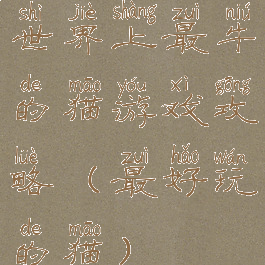 shì jiè shàng zuì niú
世界上最牛
de māo yóu xì gōng
的猫游戏攻
lüè zuì hǎo wán
略(最好玩
de māo
的猫)